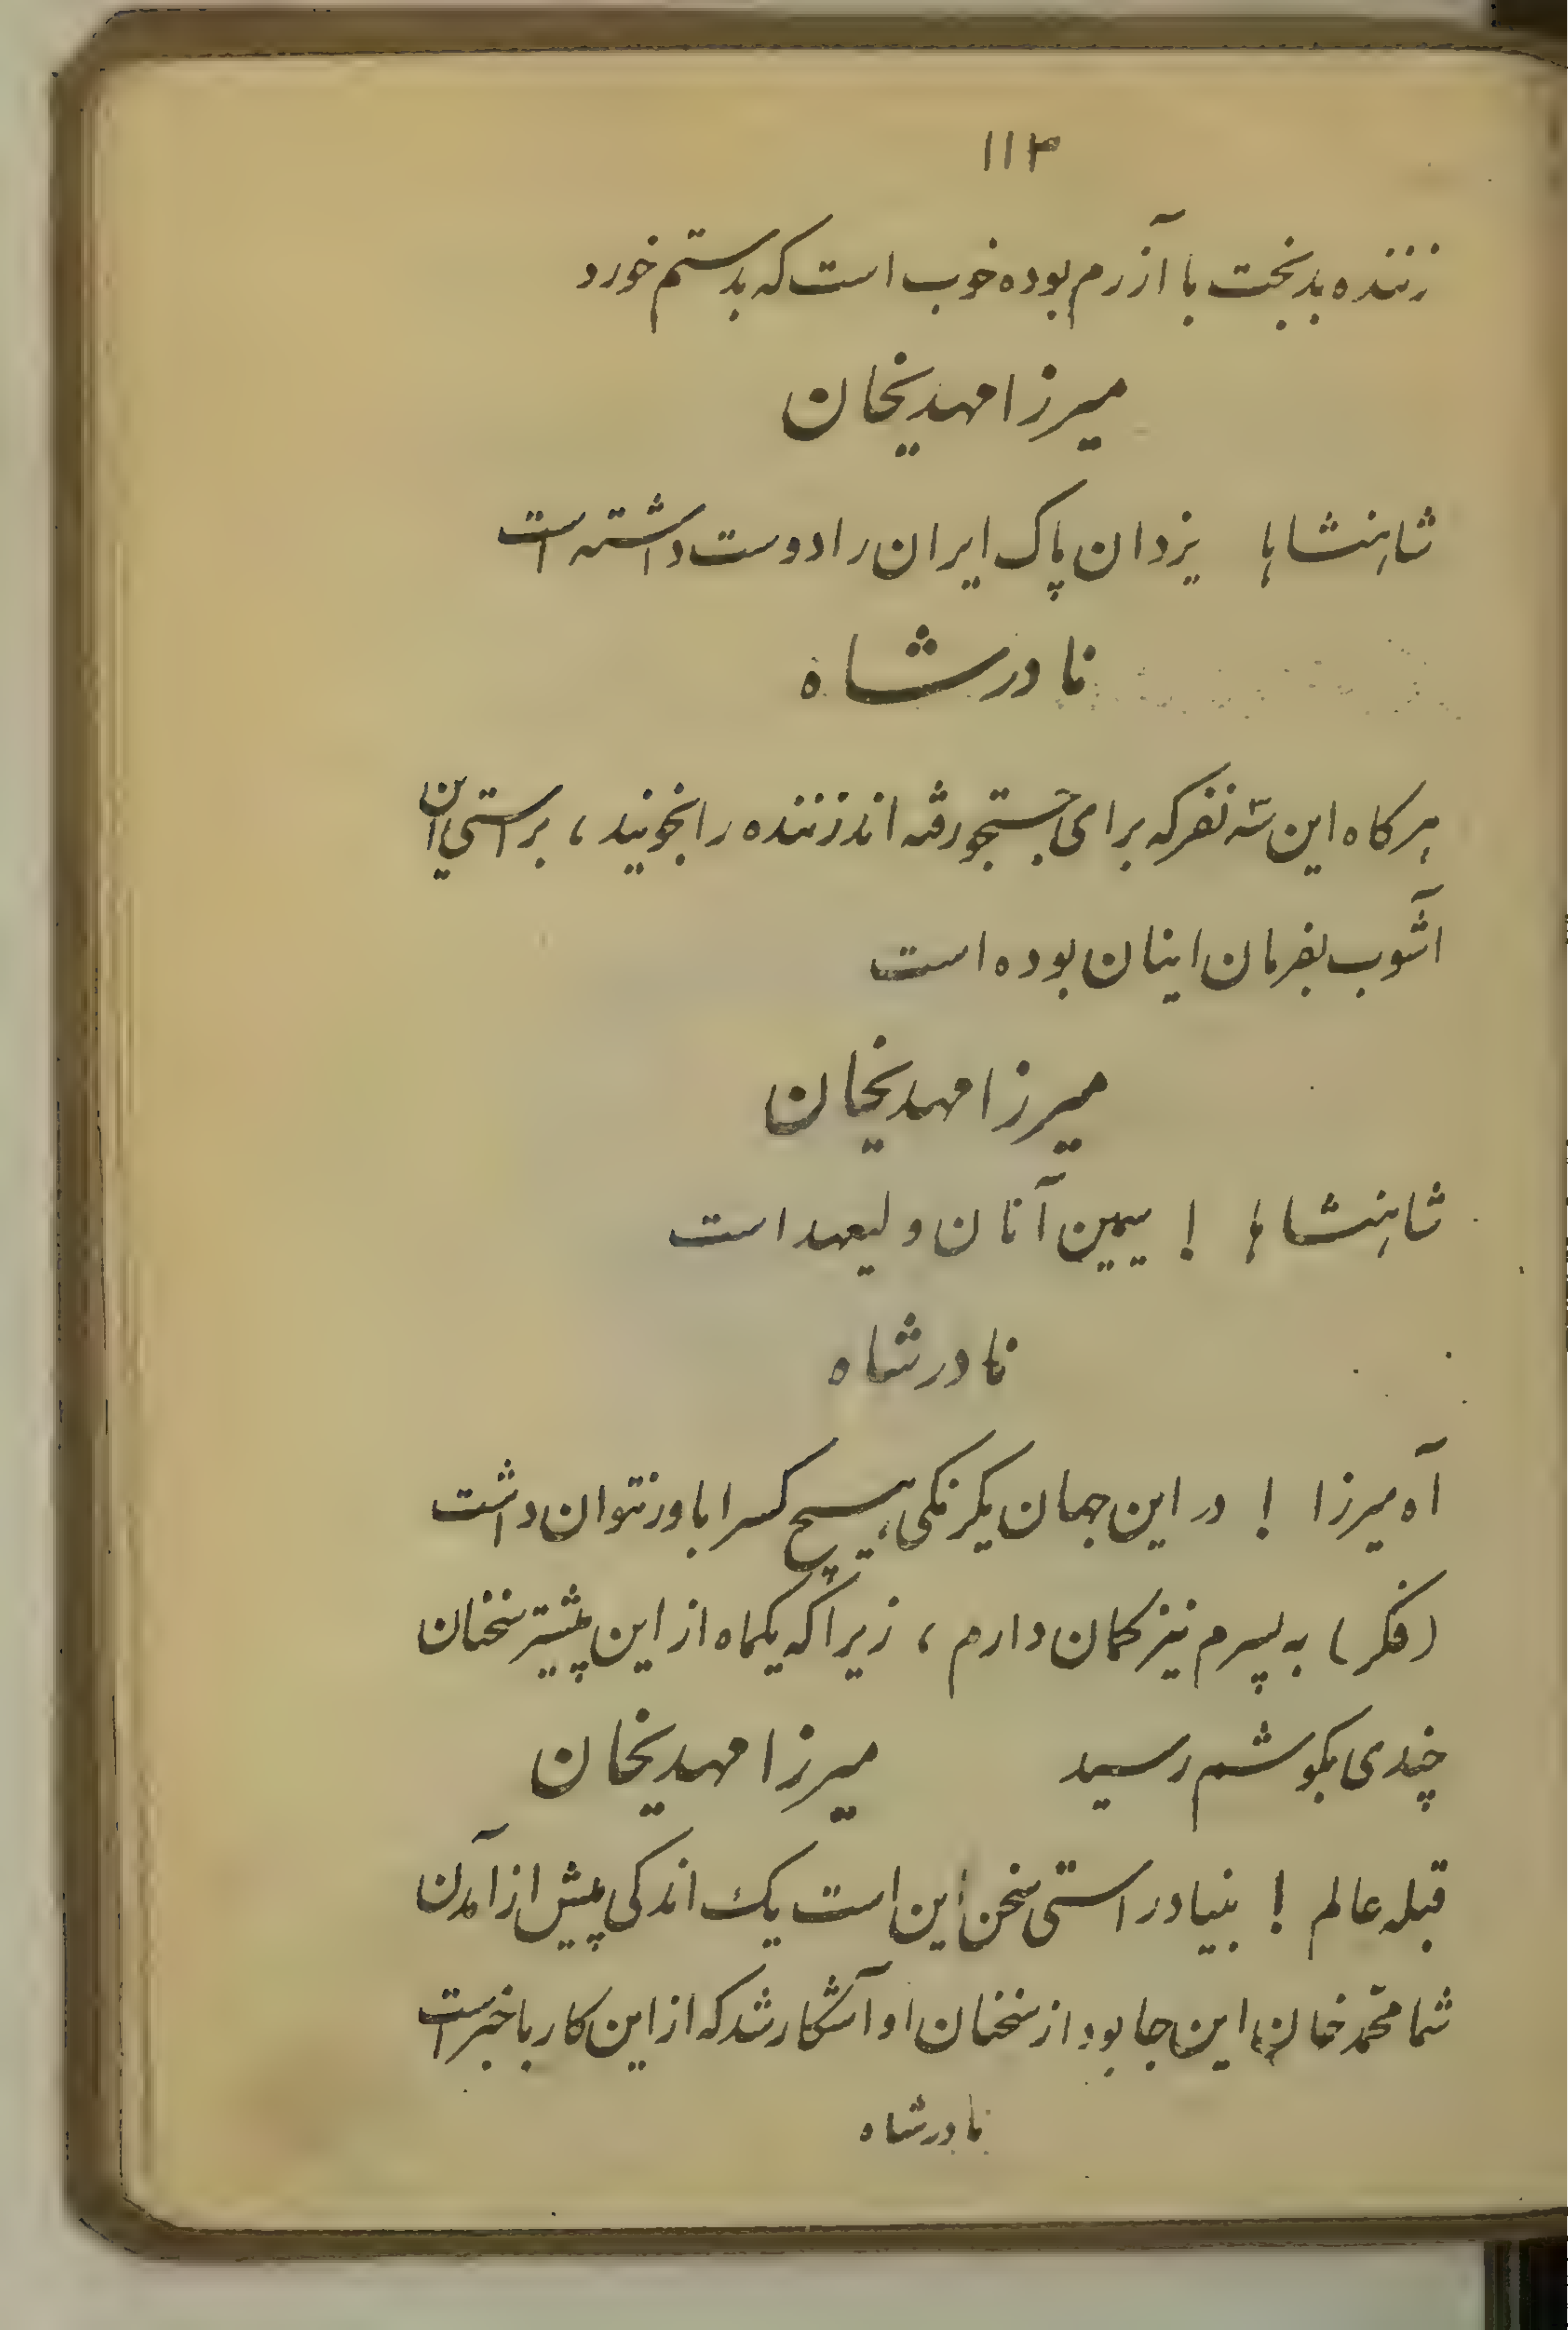 ۱۱۳
زننده بدبخت با آزرم بوده خوب است که بدستم خورد
میرزا مهدیخان
شاهنشاها یزدان پاک ایران را دوست داشته است
نادرشاه
هرکاه این سه نفر که برای جستجو رفته اند زننده را بخویند ، براستی این
آشوب بفرمان اینان بوده است
میرزا مهدیخان
شاهنشاها ! یمین آنان ولیعهد است
نادرشاه
آه میرزا ! در این جهان یکرنکی هیچ کسرا باور نتوان داشت
(فکر) به پسرم نیز کمان دارم ، زیرا که یکماه از این پیشتر سخنان
چندی بکوشم رسید میرزا مهدیخان
قبله عالم ! بنیاد راستی سخن این است یک اندکی پیش از آمدن
شما محمد خان این جا بود از سخنان او آشکار شد که از این کار با خبر است
نادرشاه